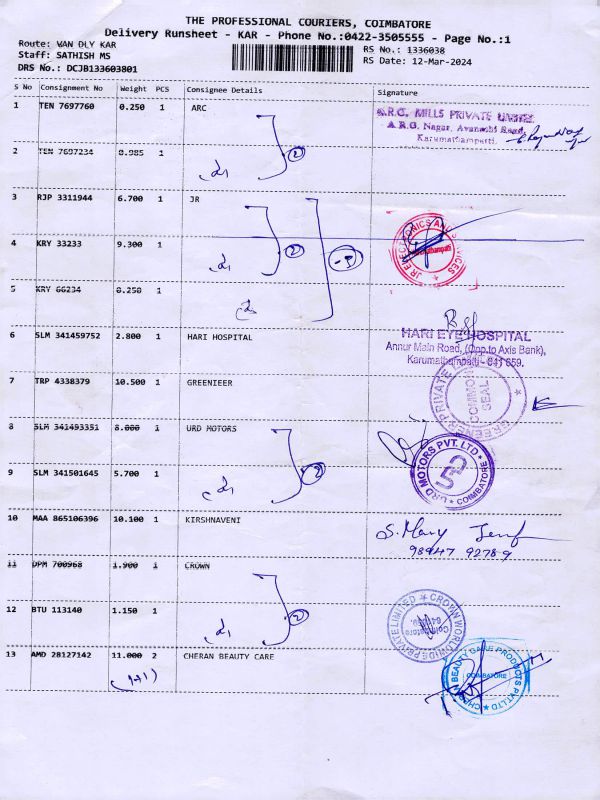 THE PROFESSIONAL COURIERS, COIMBATORE
Delivery Runsheet - KAR - Phone No.:0422-3505555 - Page No.:1
Route: WAN DLY KAR
RS No.: 1336038
Staff: SATHISH MS
RS Date: 12-Mar-2024
DRS No.: DCJB133603801
S No Consignment No Weight PCS Consignee Details Signature
1 TEN 7697760 0.250 1 ARC
A.R.G. MILLS PRIVATE LIMITED
A.R.G. Nagar, Avanashi Road,
Karumathampatti.
2 TEN 7697234 0.985 1
2
3 RJP 3311944 6.700 1 JR
JR ELECTRONICS AND SERVICES
4 KRY 33233 9.300 1
2
5 KRY 66234 0.250 1
6 SLM 341459752 2.800 1 HARI HOSPITAL
HARI EYE HOSPITAL
Annur Main Road, (Opp.to Axis Bank),
Karumathampatti - 641 659.
7 TRP 4338379 10.500 1 GREENIEER
COMMON SEAL
8 SLM 341493351 8.000 1 URD MOTORS
URD MOTORS PVT. LTD
COIMBATORE
9 SLM 341501645 5.700 1
2
10 MAA 865106396 10.100 1 KIRSHNAVENI
S. Mary
98947 92789
11 DPM 700968 1.900 1 CROWN
CROWN WORLDWIDE PRIVATE LIMITED
12 BTU 113140 1.150 1
2
13 AMD 28127142 11.000 2 CHERAN BEAUTY CARE
CHERAN BEAUTY CARE PRODUCTS PVT LTD
COIMBATORE
(1+1)